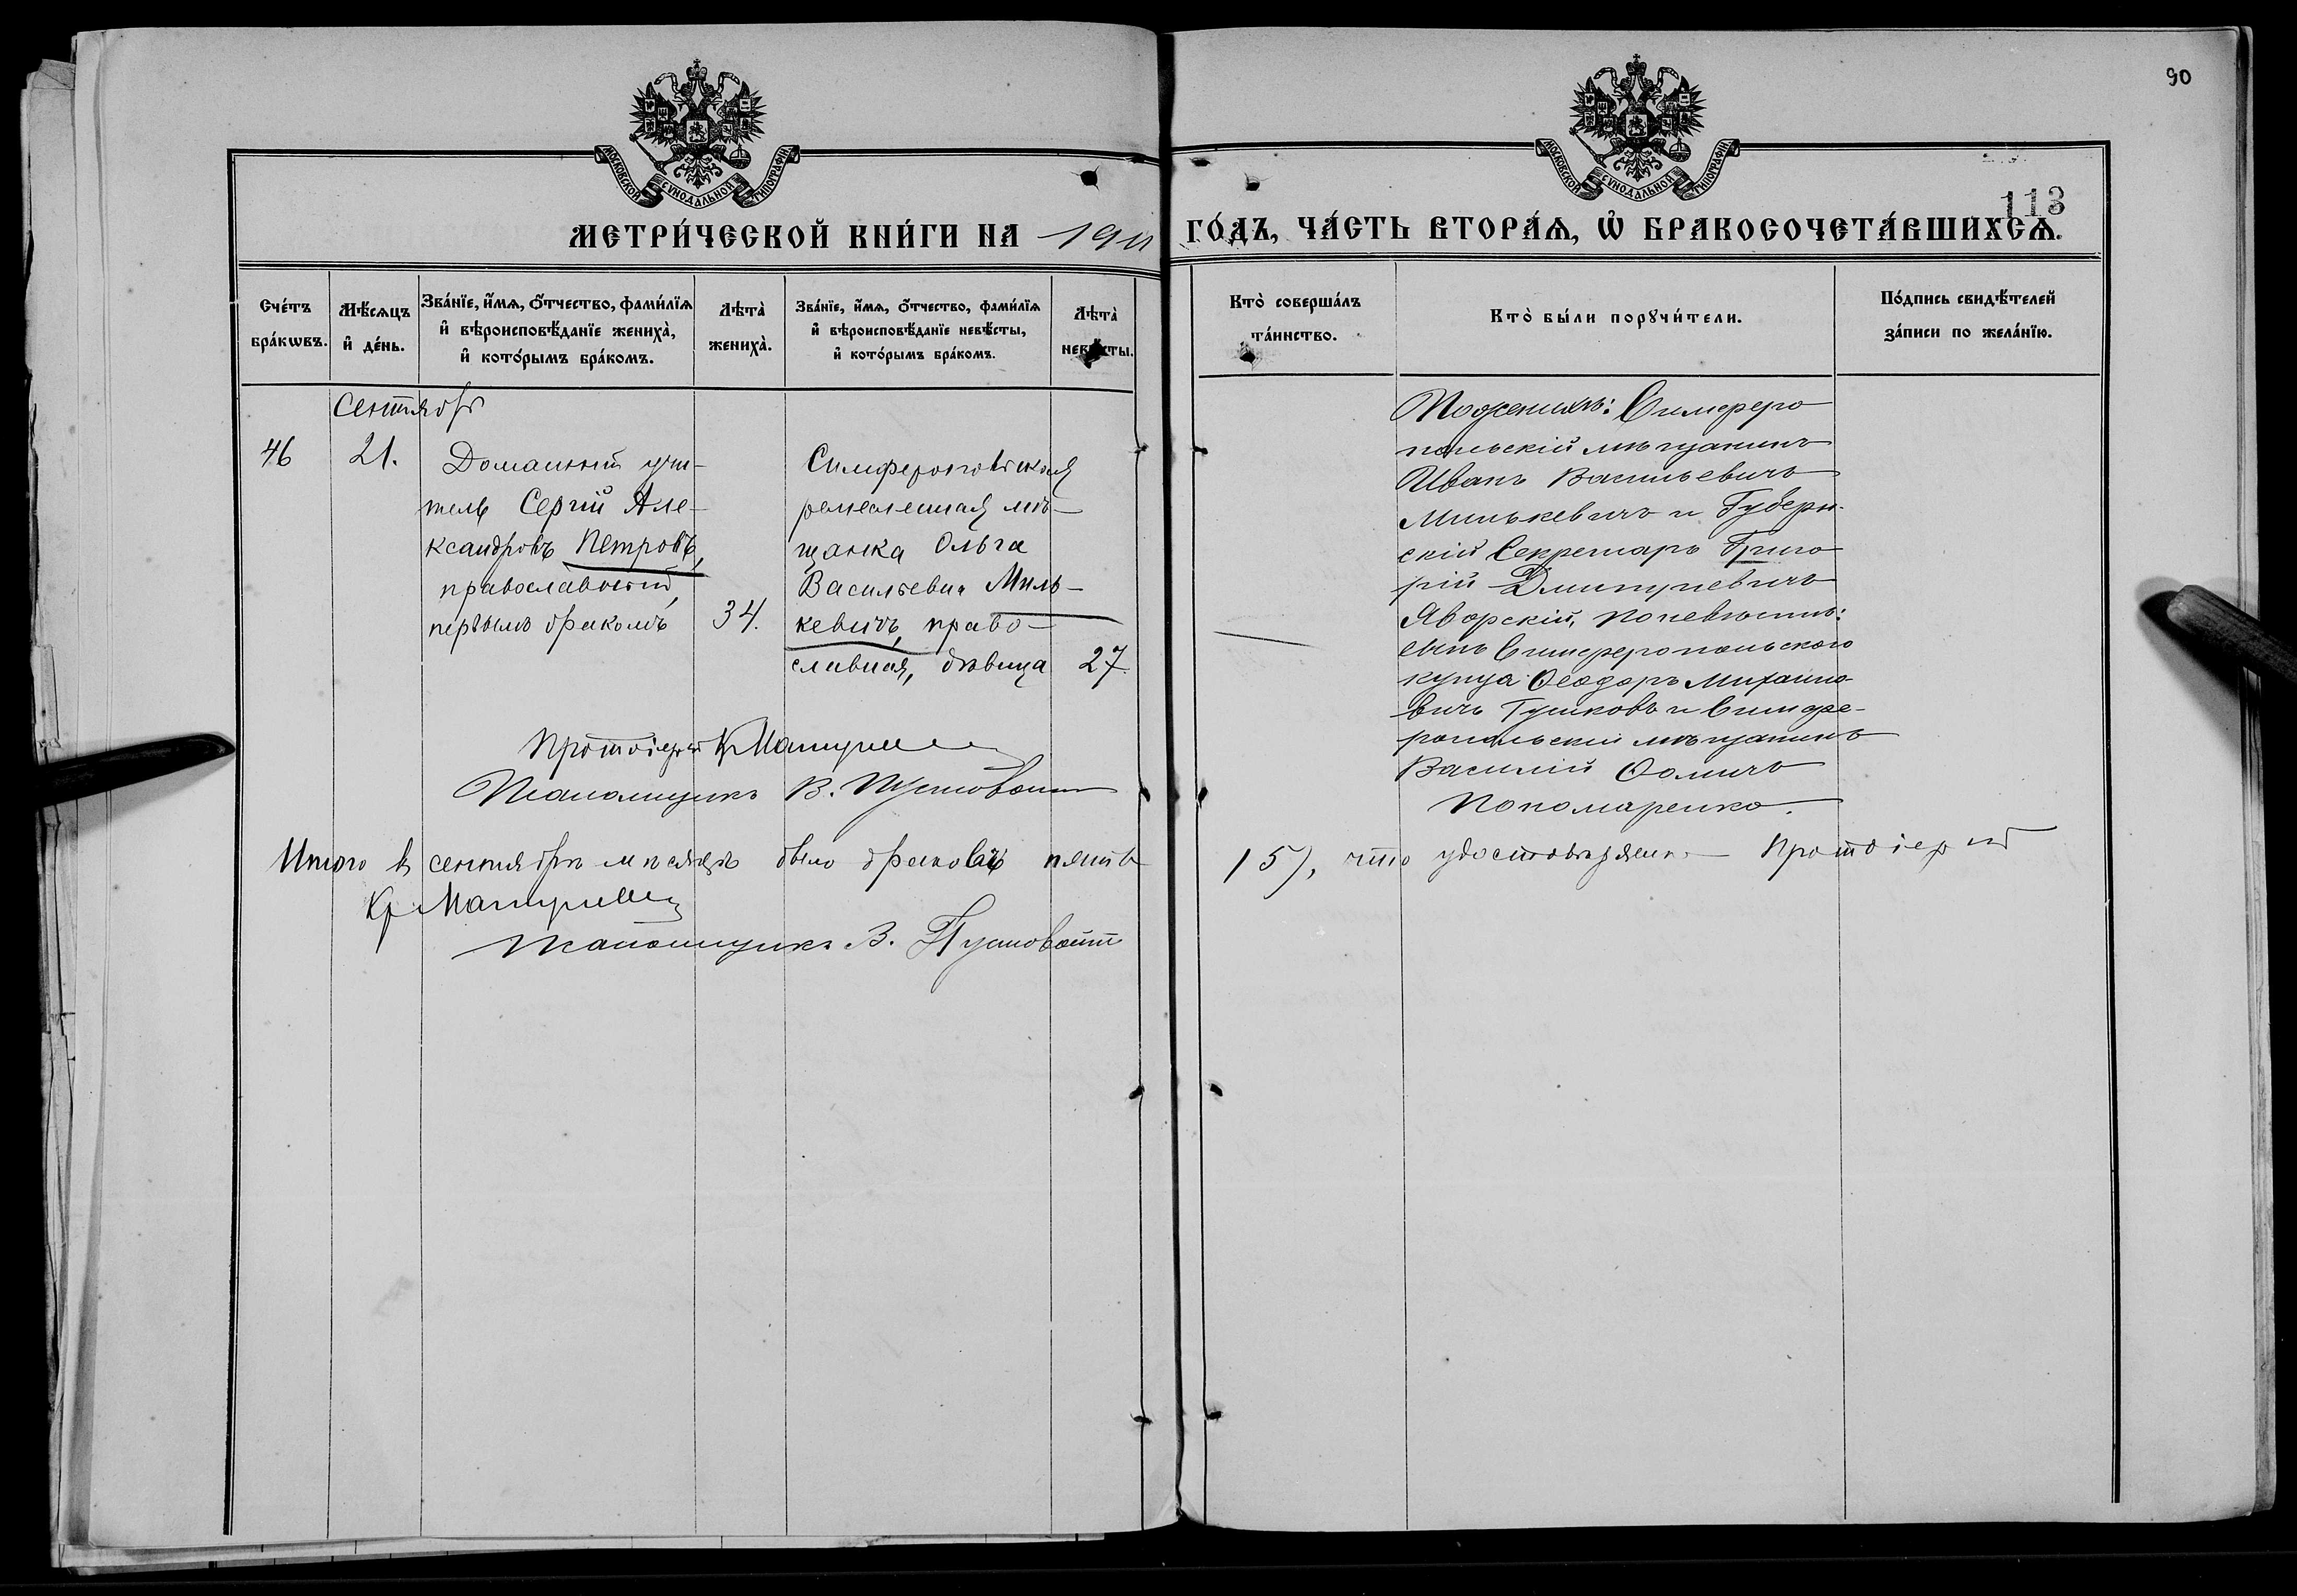 90
МОСКОВСКОЙ СѴНОДАЛЬНОЙ ТИПОГРАФІИ
МОСКОВСКОЙ СѴНОДАЛЬНОЙ ТИПОГРАФІИ
113
МЕТРИ́ЧЕСКОЙ КНИ́ГИ НА 1911 ГО́ДЪ, ЧА́СТЬ ВТОРА́Ѧ, Ѽ БРАКОСОЧЕТА́ВШИХСѦ.
Сче́тъ бра́кѡвъ.
Мѣ́сѧцъ и҆ де́нь.
Зва́нїе, и҆́мѧ, ѻ҆́тчество, фами́лїѧ
и҆ вѣроисповѣ́данїе жениха̀,
и҆ кото́рымъ бра́комъ.
Лѣта̀ жениха̀.
Зва́нїе, и҆́мѧ, ѻ҆́тчество, фами́лїѧ
и҆ вѣроисповѣ́данїе невѣ́сты,
и҆ кото́рымъ бра́комъ.
Лѣта̀ невѣ́сты.
Кто̀ соверша́лъ та́инство.
Кто̀ бы́ли порꙋчи́тели.
По́дпись свидѣ́телей за́писи по жела́нїю.
Сентябрь
46
21.
Домашній учи-
тель Сергій Але-
ксандровъ Петровъ,
православный,
первымъ бракомъ
34.
Симферопольская
ремесленная мѣ-
щанка Ольга
Васильевна Миль-
кевичъ, право-
славная, дѣвица
27.
По женихѣ: Симферо
польскій мѣщанинъ
Иванъ Васильевичъ
Милькевичъ и Губерн-
скій Секретарь Григо
рій Дмитріевичъ
Яворскій, по невѣстѣ:
сынъ Симферопольского
купца Ѳеодоръ Михайло-
вичъ Гушковъ и Симфе-
ропольскій мѣщанинъ
Василій Ѳомичъ
Пономаренко.
Протоіерей
Псаломщикъ В. Пустовойтъ
Итого въ сентябрѣ мѣсяцѣ было браковъ пять
(5), что удостовѣряемъ Протоіерей
Псаломщикъ В. Пустовойтъ